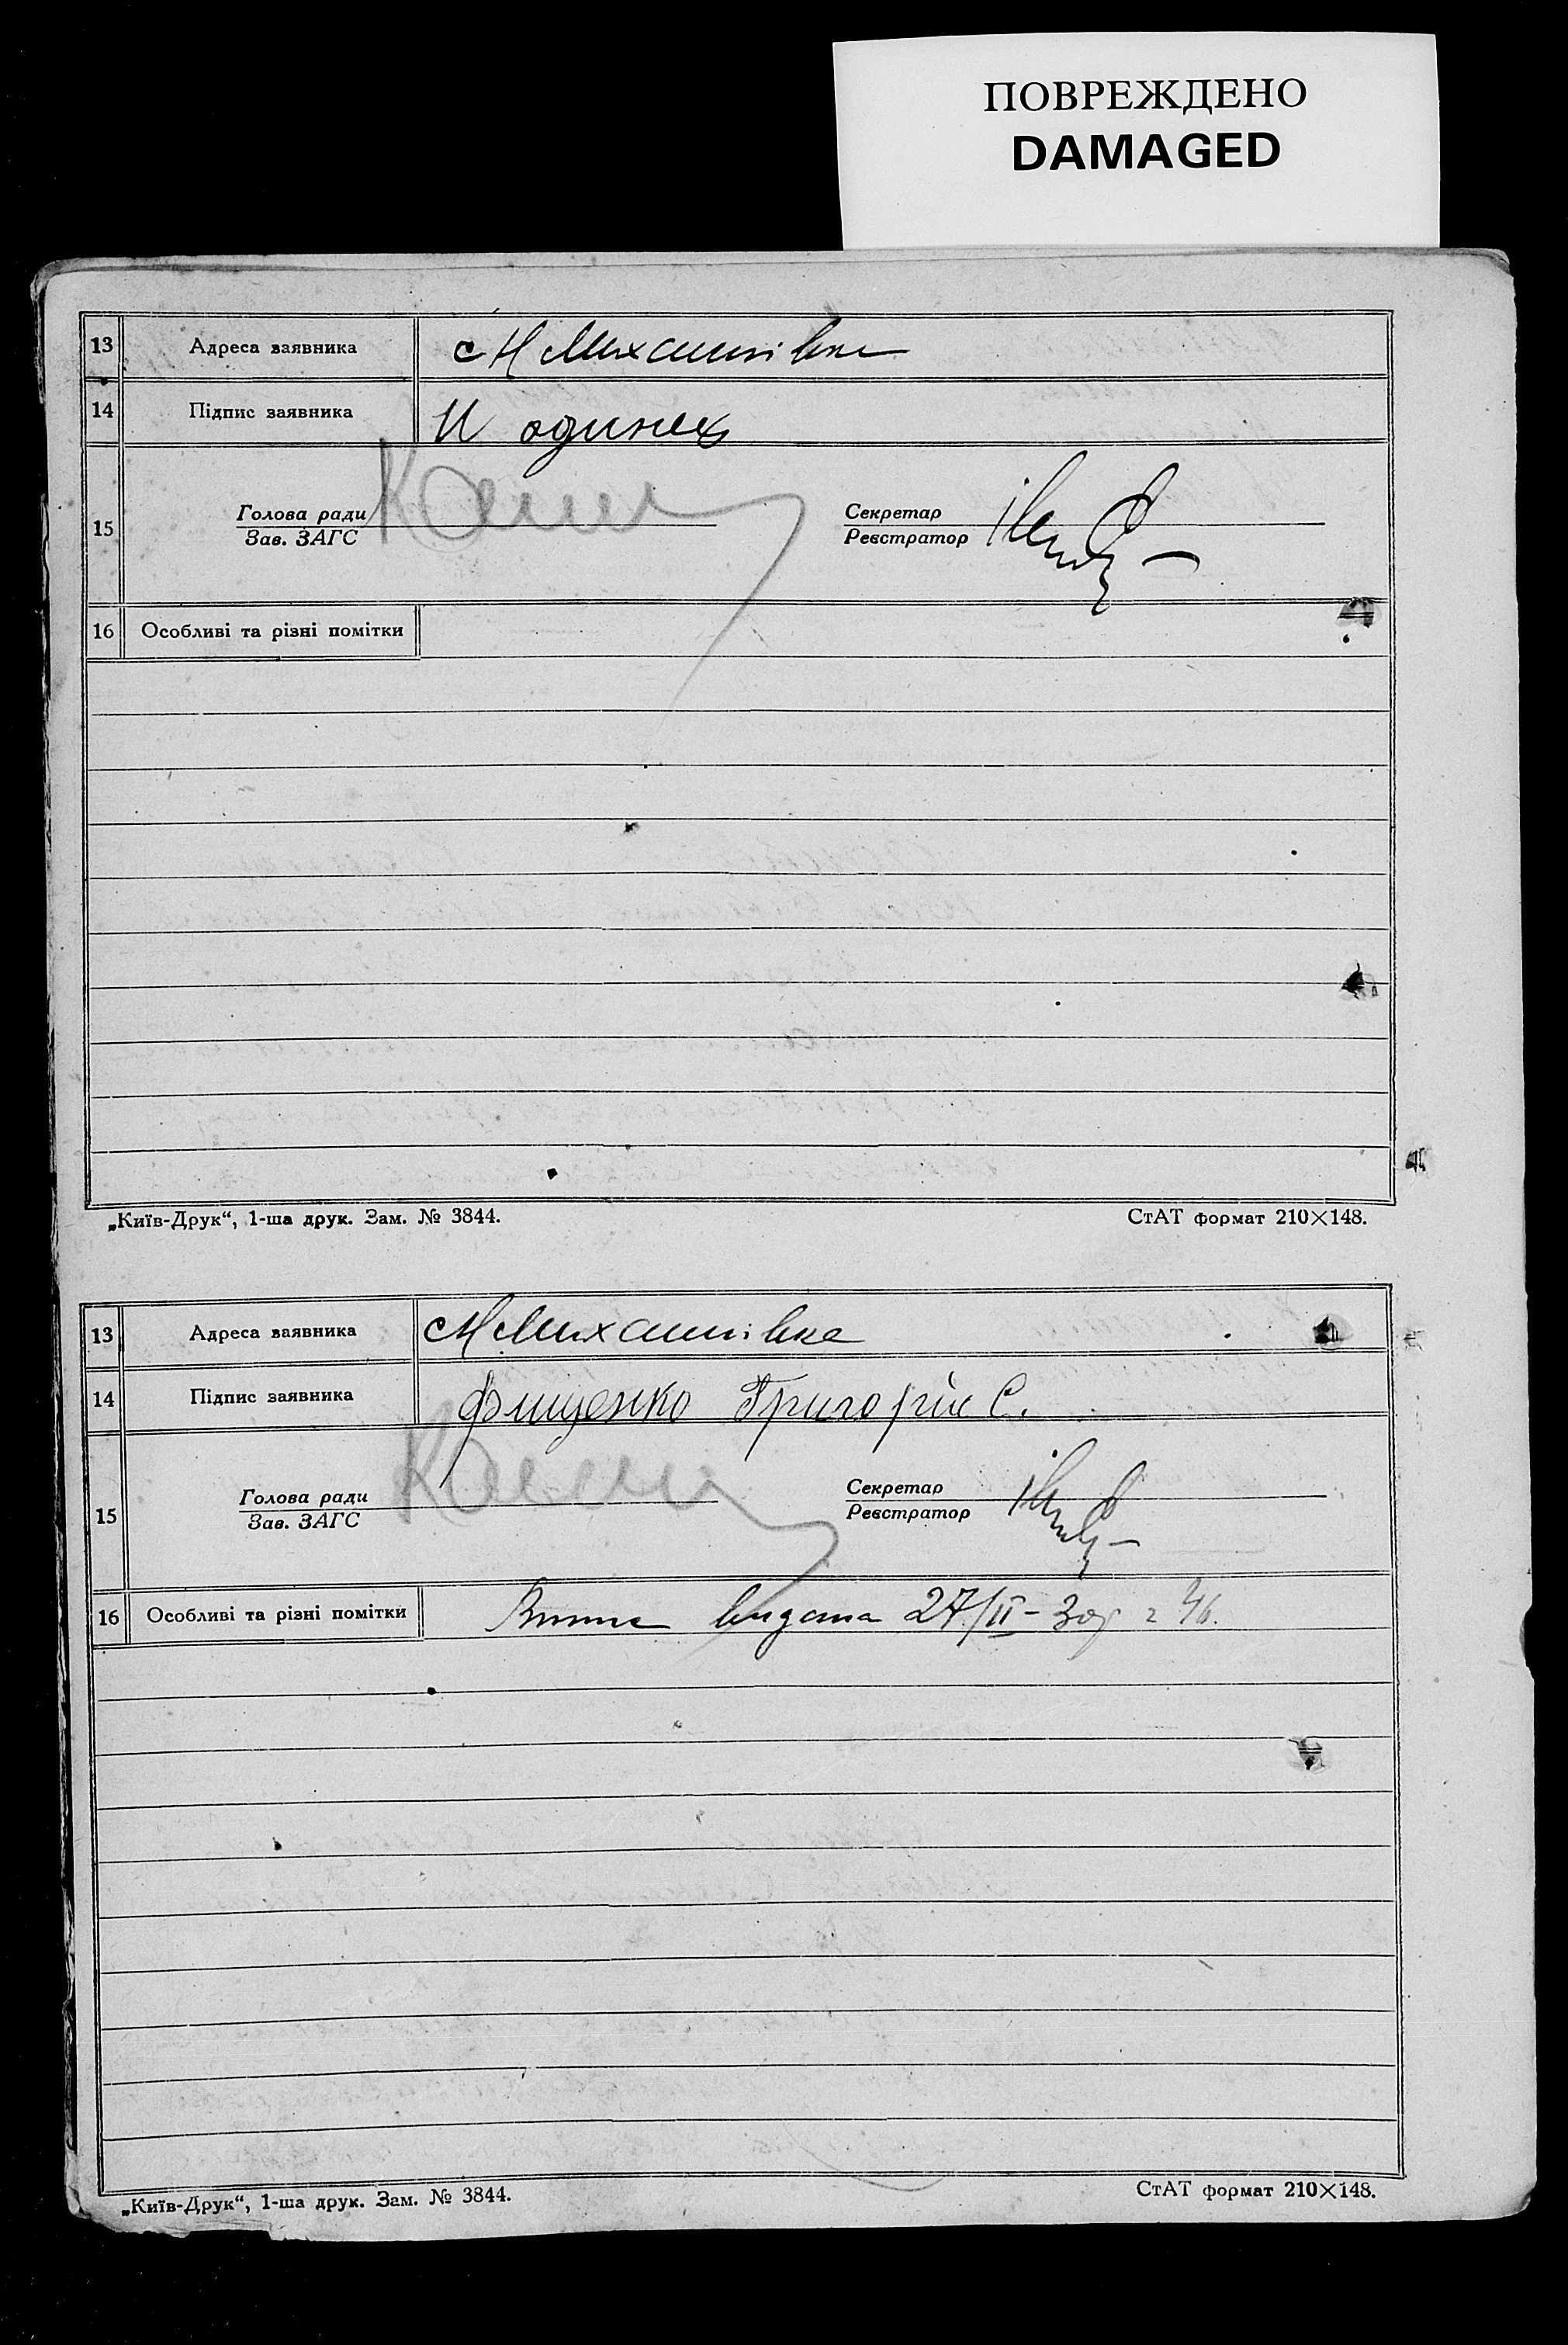 ПОВРЕЖДЕНО
DAMAGED
13 Адреса заявника с Н Михайлівка
14 Підпис заявника И одинец
15 Голова ради Секретар
Зав. ЗАГС Реєстратор
16 Особливі та різні помітки
„Київ-Друк“, 1-ша друк. Зам. № 3844. СтАТ формат 210×148.
13 Адреса заявника с Н Михайлівка
14 Підпис заявника Фищенко Григорій С.
15 Голова ради Секретар
Зав. ЗАГС Реєстратор
16 Особливі та різні помітки видана 27/II-
„Київ-Друк“, 1-ша друк. Зам. № 3844. СтАТ формат 210×148.